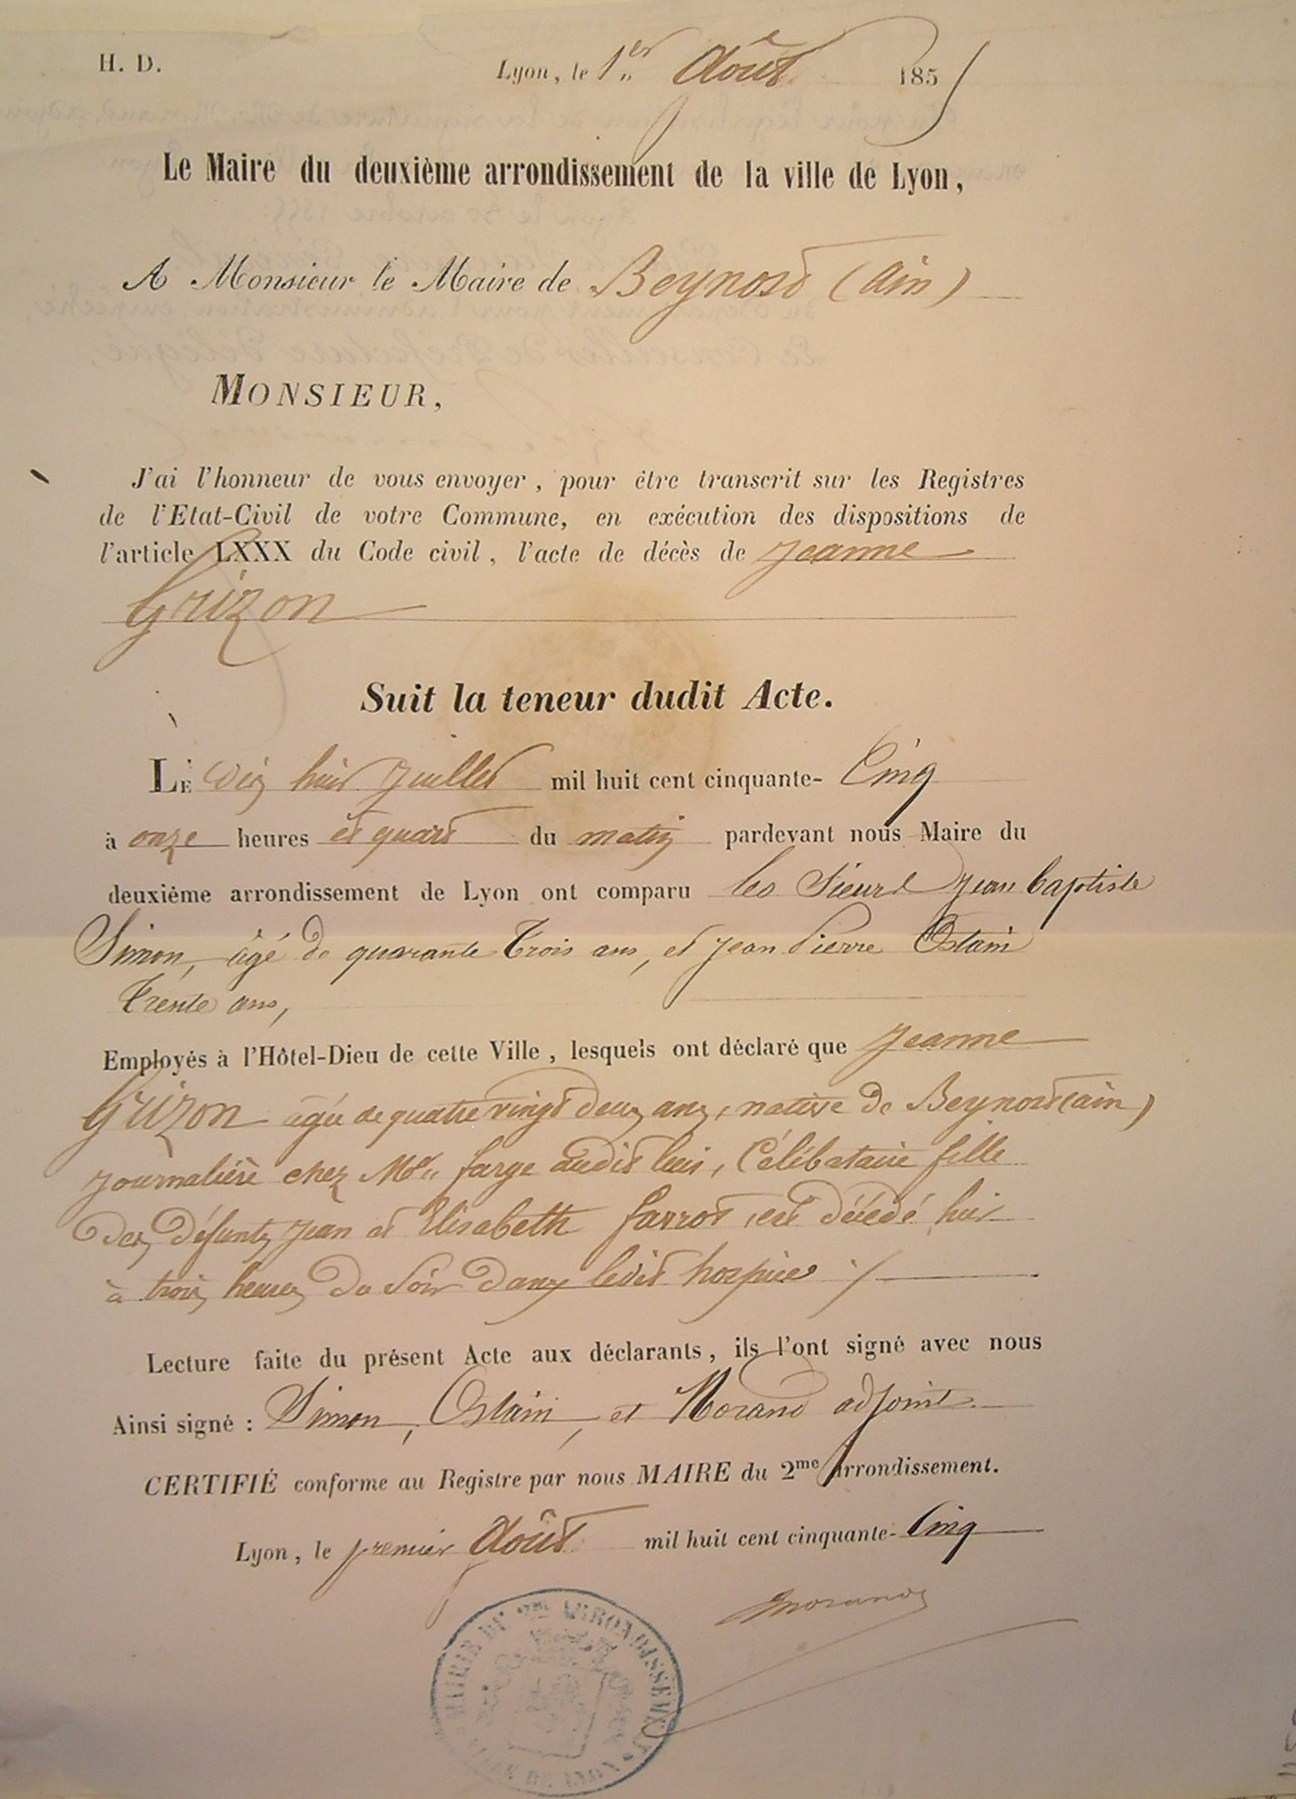 H. D.
Lyon, le 1er Août 1855
Le Maire du deuxième arrondissement de la ville de Lyon,
A Monsieur le Maire de Beynost (ain)
MONSIEUR,
J'ai l'honneur de vous envoyer, pour être transcrit sur les Registres
de l'Etat-Civil de votre Commune, en exécution des dispositions de
l'article LXXX du Code civil, l'acte de décès de Jeanne
Grizon
Suit la teneur dudit Acte.
LE dix huit Juillet mil huit cent cinquante- Cinq
à onze heures et quart du matin pardevant nous Maire du
deuxième arrondissement de Lyon ont comparu les Sieurs Jean baptiste
Simon, âgé de quarante trois ans, et Jean Pierre Ostain
Trente ans,
Employés à l'Hôtel-Dieu de cette Ville, lesquels ont déclaré que Jeanne
Grizon agée de quatre vingt deux ans, native de Beynost (ain)
journalière chez farge audit lieu, Célébataire fille
des défunts Jean et Elisabeth farrot, est décédé hier
à trois heures du Soir dans ledit hospice ./
Lecture faite du présent Acte aux déclarants, ils l'ont signé avec nous
Ainsi signé : Simon, Ostain, et Morand adjoint
CERTIFIÉ conforme au Registre par nous MAIRE du 2me arrondissement.
Lyon, le premier Août mil huit cent cinquante- Cinq
Morand
MAIRIE DU 2me ARRONDISSEMENT
VILLE DE LYON